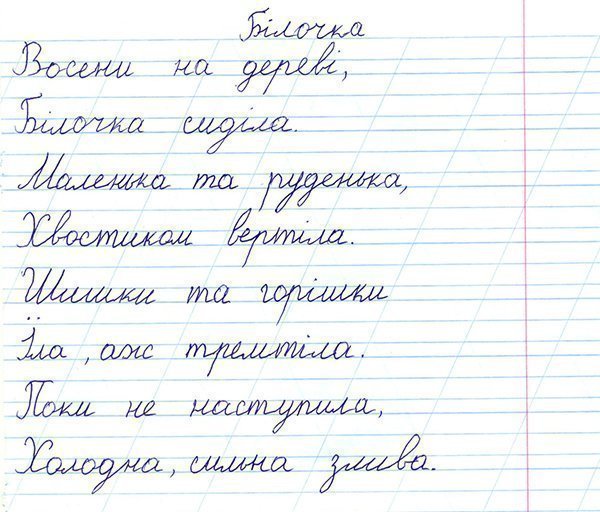 Білочка
Восени на дереві,
Білочка сиділа.
Маленька та руденька,
Хвостиком вертіла.
Шишки та горішки
Їла, аж тремтіла.
Поки не наступила,
Холодна, сильна злива.